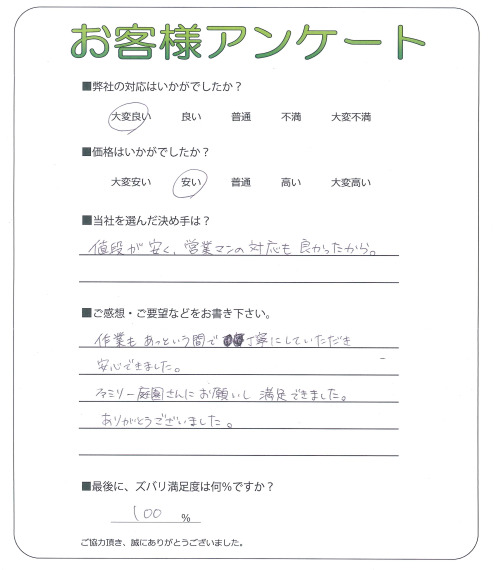 お客様アンケート
■弊社の対応はいかがでしたか？
大変良い 良い 普通 不満 大変不満
■価格はいかがでしたか？
大変安い 安い 普通 高い 大変高い
■当社を選んだ決め手は？
値段が安く、営業マンの対応も良かったから。
■ご感想・ご要望などをお書き下さい。
作業もあっという間で丁寧にしていただき
安心できました。
ファミリー庭園さんにお願いし満足できました。
ありがとうございました。
■最後に、ズバリ満足度は何%ですか？
100 %
ご協力頂き、誠にありがとうございました。